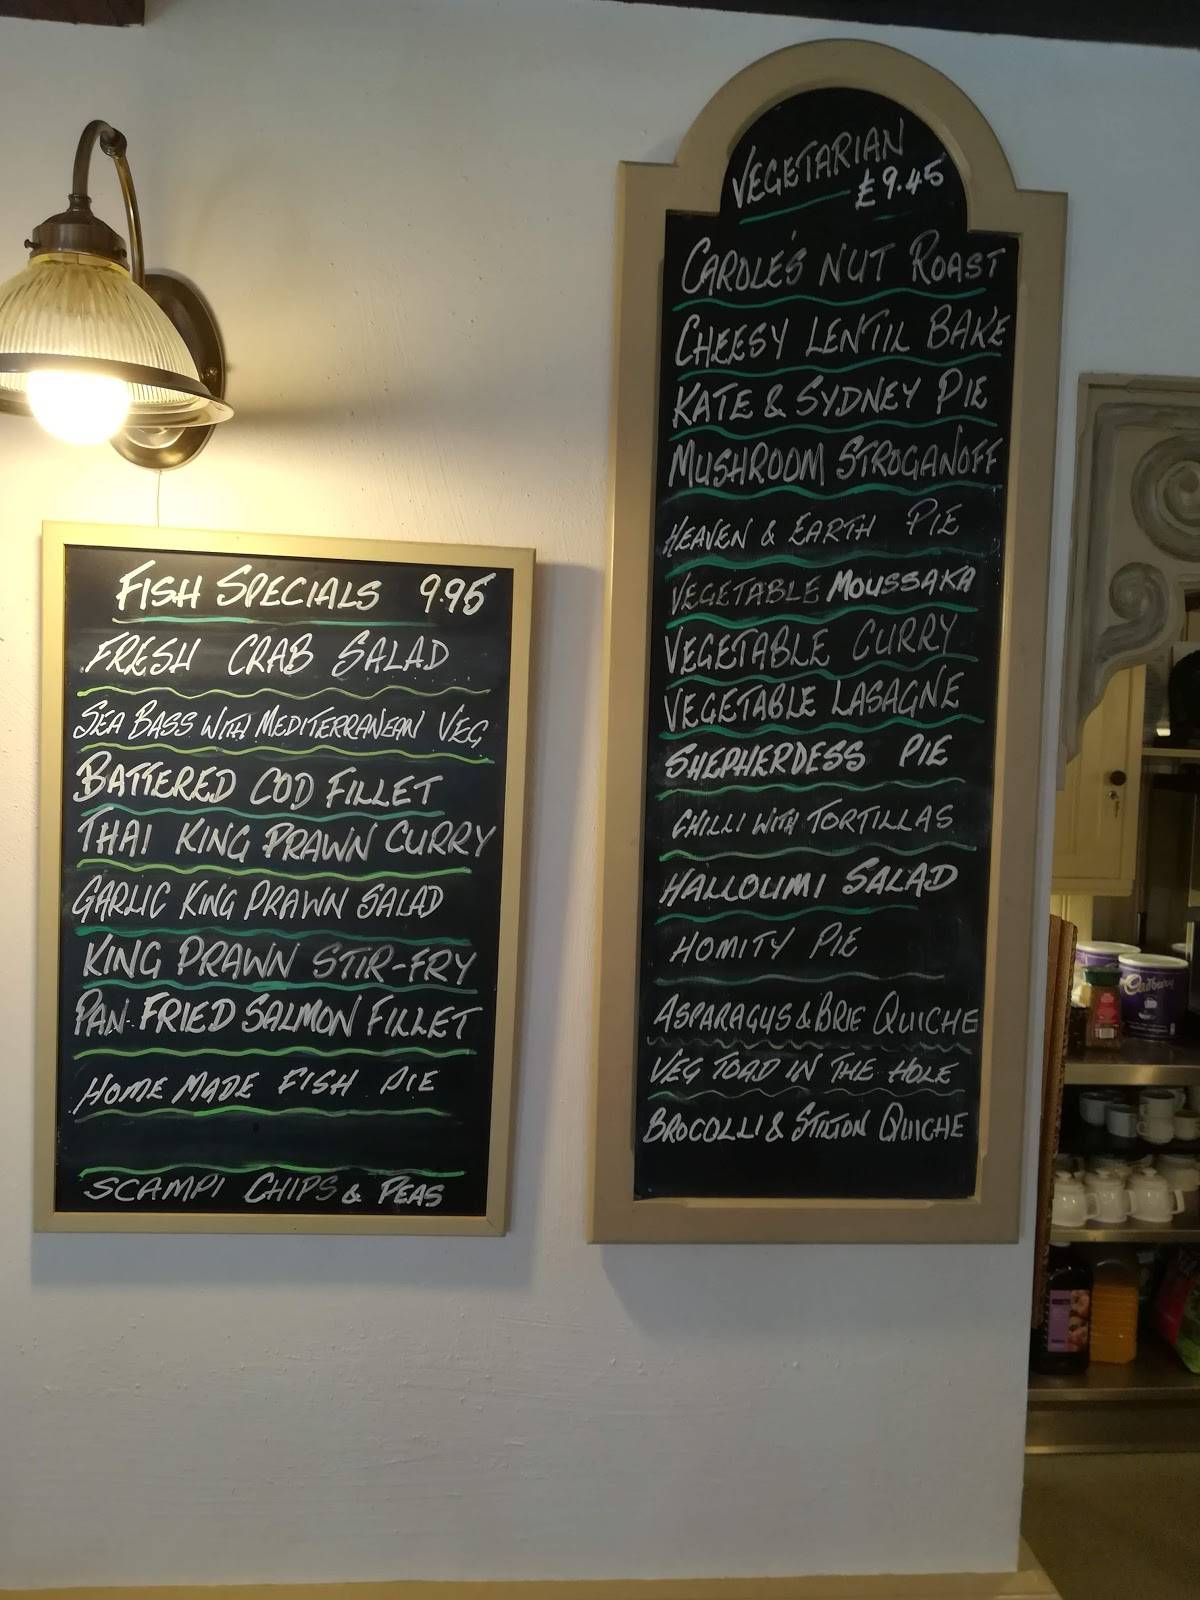 FISH SPECIALS 9.95
FRESH CRAB SALAD
SEA BASS WITH MEDITERRANEAN VEG
BATTERED COD FILLET
THAI KING PRAWN CURRY
GARLIC KING PRAWN SALAD
KING PRAWN STIR-FRY
PAN-FRIED SALMON FILLET
HOME MADE FISH PIE
SCAMPI CHIPS & PEAS
VEGETARIAN
£9.45
CAROLE'S NUT ROAST
CHEESY LENTIL BAKE
KATE & SYDNEY PIE
MUSHROOM STROGANOFF
HEAVEN & EARTH PIE
VEGETABLE MOUSSAKA
VEGETABLE CURRY
VEGETABLE LASAGNE
SHEPHERDESS PIE
CHILLI WITH TORTILLAS
HALLOUMI SALAD
HOMITY PIE
ASPARAGUS & BRIE QUICHE
VEG TOAD IN THE HOLE
BROCOLLI & STILTON QUICHE
Cadbury